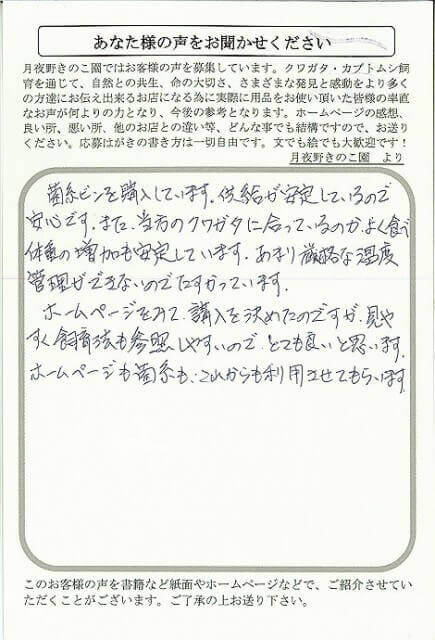 あなた様の声をお聞かせください
月夜野きのこ園ではお客様の声を募集しています。クワガタ・カブトムシ飼
育を通じて、自然との共生、命の大切さ、さまざまな発見と感動をより多く
の方達にお伝え出来るお店になる為に実際に用品をお使い頂いた皆様の率直
なお声が何よりの力となり、今後の参考となります。ホームページの感想、
良い所、悪い所、他のお店との違い等、どんな事でも結構ですので、お送り
ください。応募はがきの書き方は一切自由です。文でも絵でも大歓迎です！
月夜野きのこ園　より
菌糸ビンを購入しています。供給が安定しているので
安心です。また、当方のクワガタに合っているのか、よく食べ
体重の増加も安定しています。あまり厳格な温度
管理ができないのでたすかっています。
ホームページをみて、購入を決めたのですが、見や
すく飼育法も参照しやすいので、とても良いと思います。
ホームページも菌糸も、これからも利用させてもらいます。
このお客様の声を書籍など紙面やホームページなどで、ご紹介させてい
ただくことがございます。ご了承の上お送り下さい。